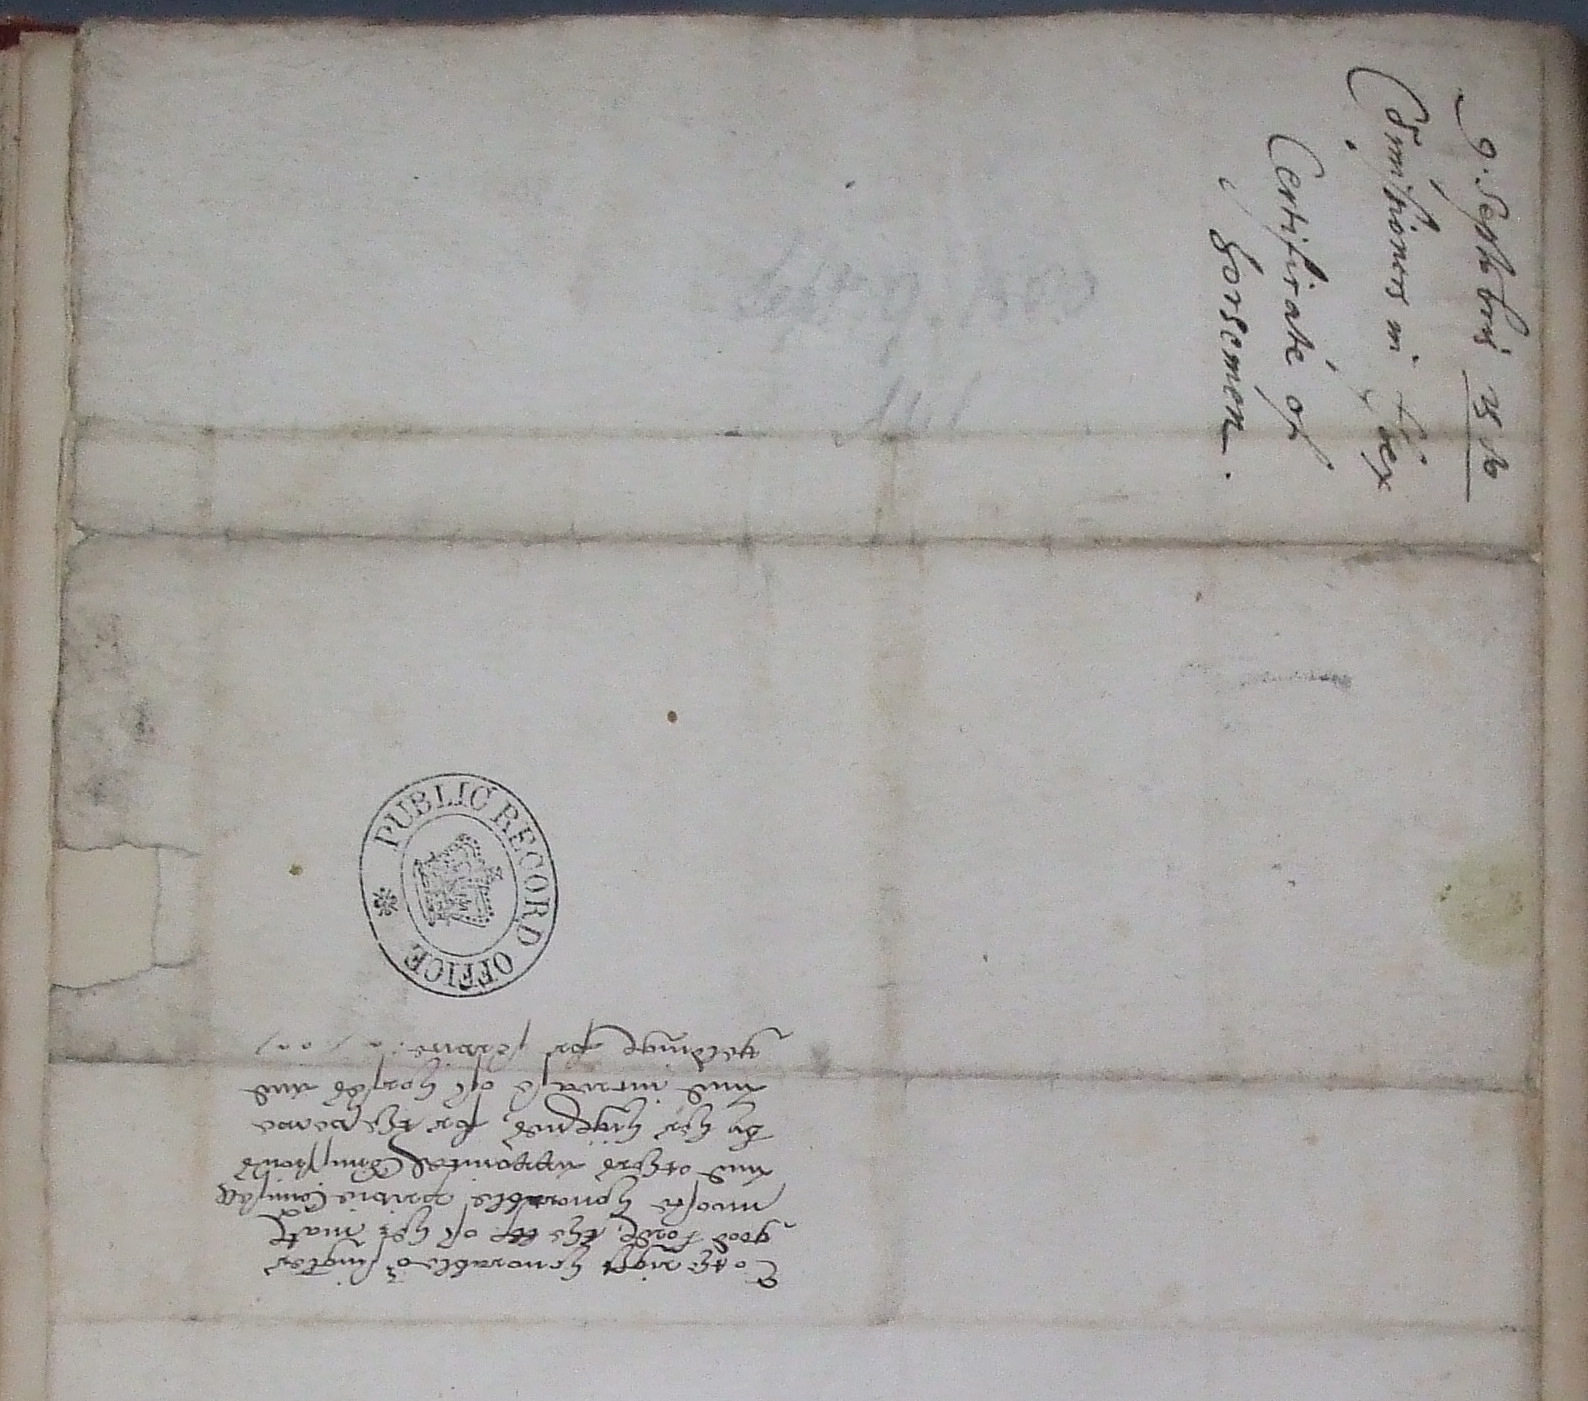 9. Septembris 1586
Comissioners in Essex
Certificate of
horsemen.
PUBLIC RECORD OFFICE
To the right honorable or singler
good Lordes the ll of her matꝭ
moste honorable privie Counsell
and others appointed Comissions
by her highnes for the
and increase of horses and
geldinges for service